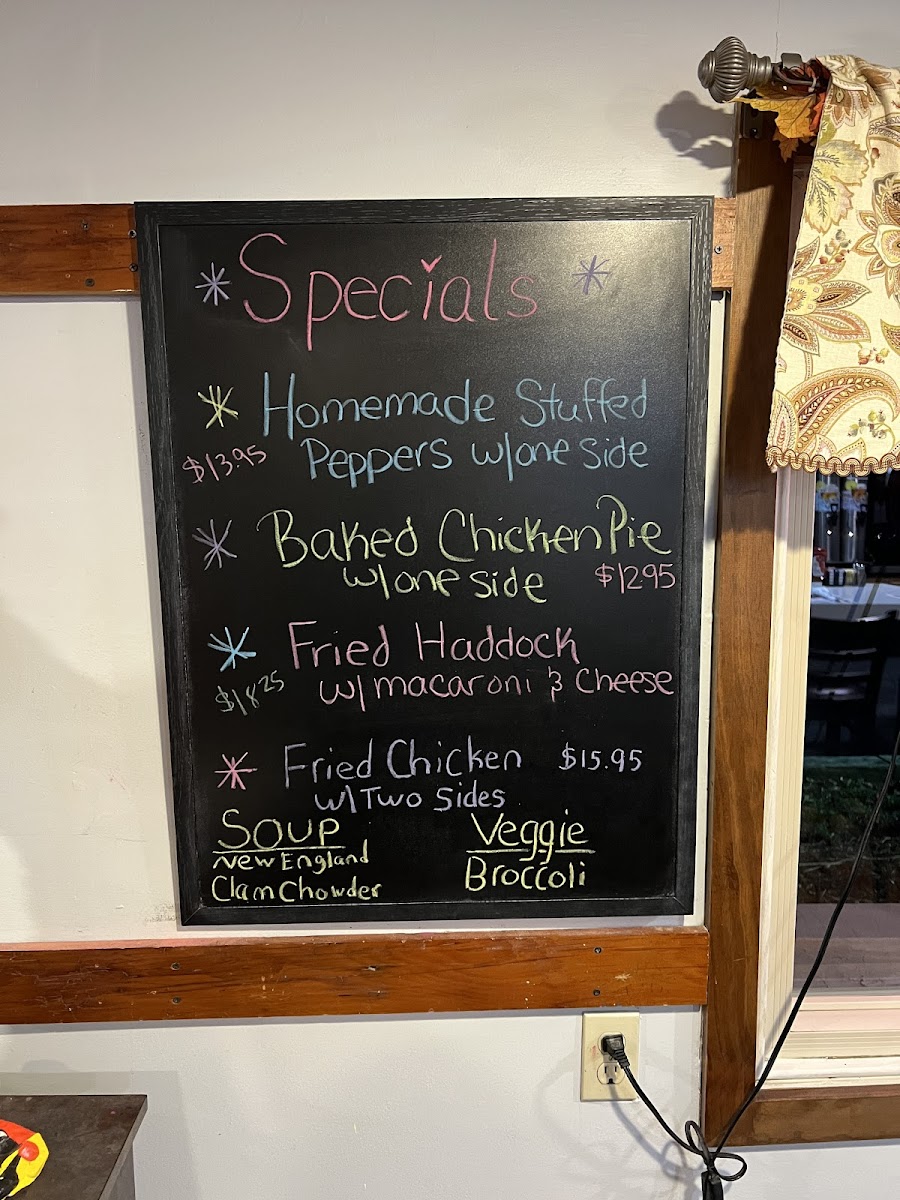 Specials
Homemade Stuffed
$13.95 Peppers w/one side
Baked Chicken Pie
w/one side $12.95
Fried Haddock
$18.25 w/macaroni & Cheese
Fried Chicken $15.95
w/Two Sides
Soup
New England
Clam Chowder
Veggie
Broccoli